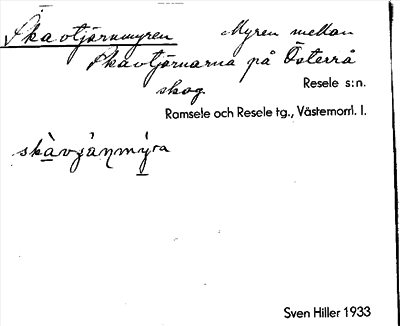 Skavtjärnmyren Myren mellan
Skavtjärnarna på Österrå
skog.
Resele s:n.
Ramsele och Resele tg., Västernorrl. l.
Sven Hiller 1933